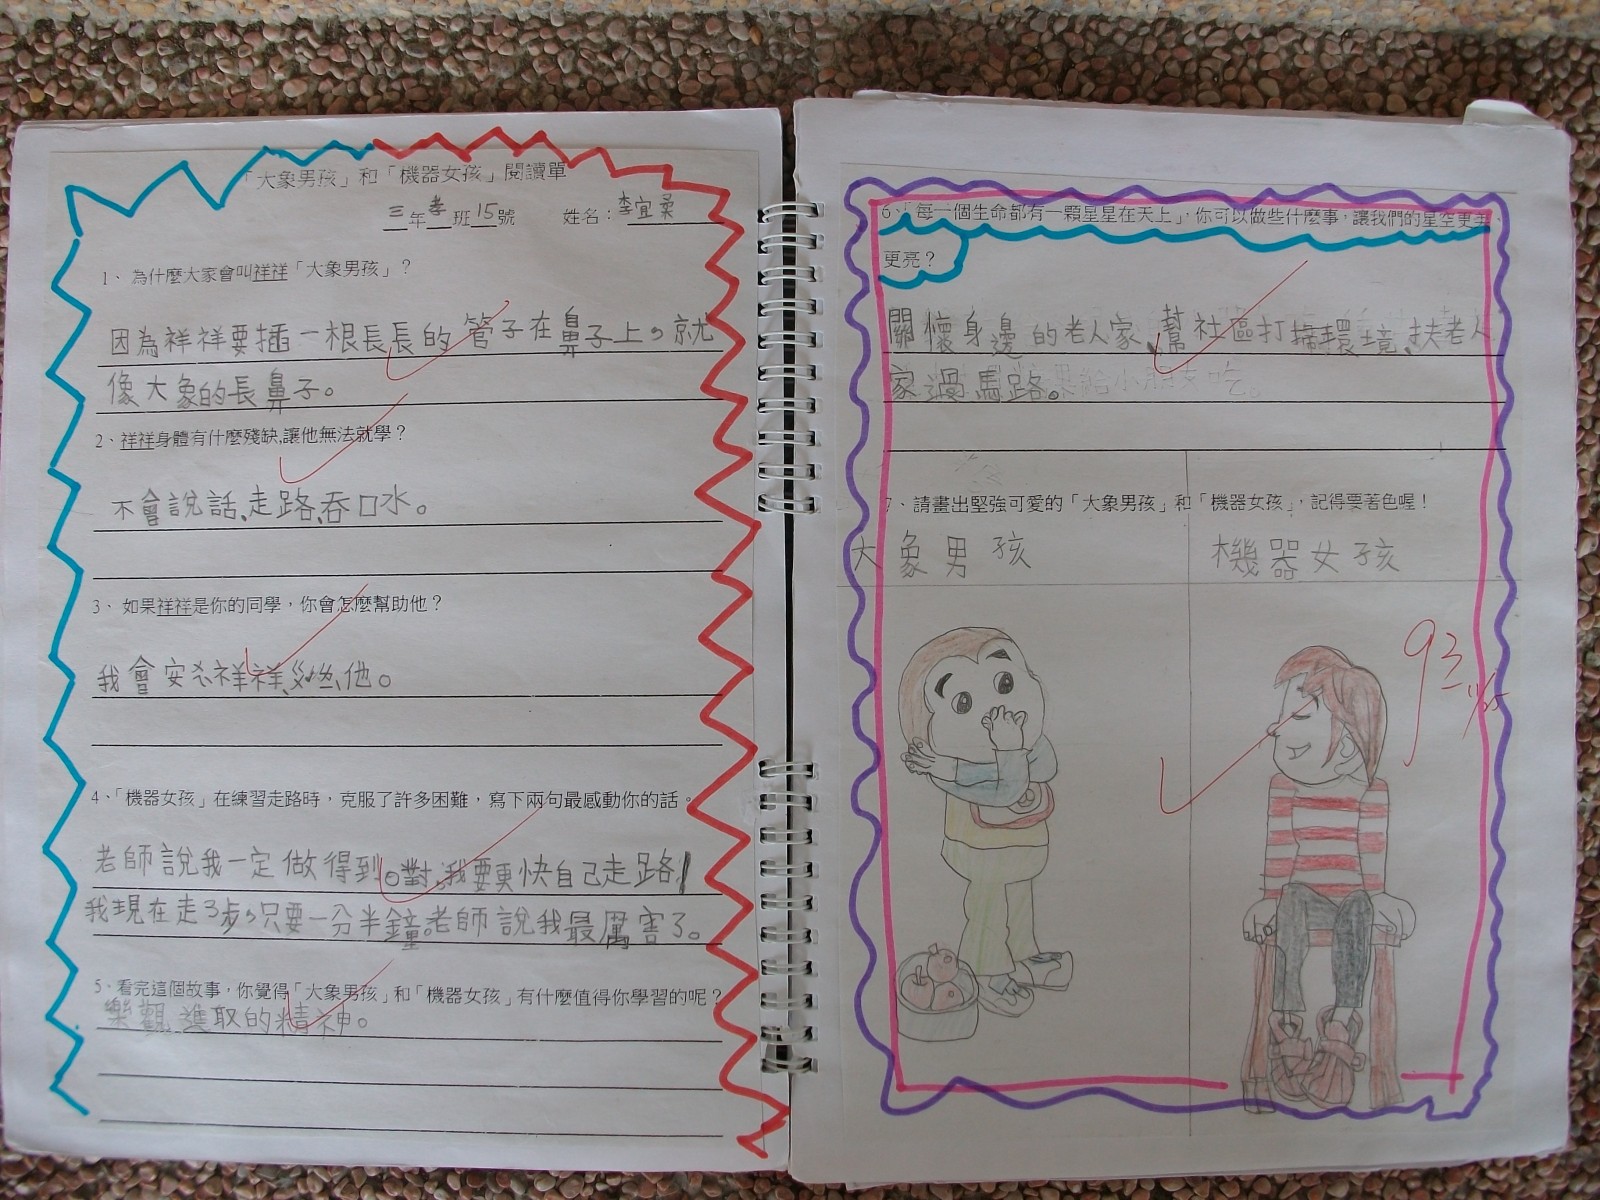 「大象男孩」和「機器女孩」閱讀單
三年孝班15號 姓名：李宜柔
1、 為什麼大家會叫祥祥「大象男孩」？
因為祥祥要插一根長長的管子在鼻子上，就
像大象的長鼻子。
2、祥祥身體有什麼殘缺,讓他無法就學？
不會說話、走路、吞口水。
3、 如果祥祥是你的同學，你會怎麼幫助他？
我會安 祥祥、 他。
4、「機器女孩」在練習走路時，克服了許多困難，寫下兩句最感動你的話。
老師說我一定做得到。對,我要更快自己走路!
我現在走3步，只要一分半鐘。老師說我最厲害了。
5、看完這個故事，你覺得「大象男孩」和「機器女孩」有什麼值得你學習的呢？
樂觀進取的精神。
6、「每一個生命都有一顆星星在天上」，你可以做些什麼事，讓我們的星空更美、
更亮？
關懷身邊的老人家、幫社區打掃環境、扶老人
家過馬路。
7、請畫出堅強可愛的「大象男孩」和「機器女孩」，記得要著色喔！
大象男孩 機器女孩
93